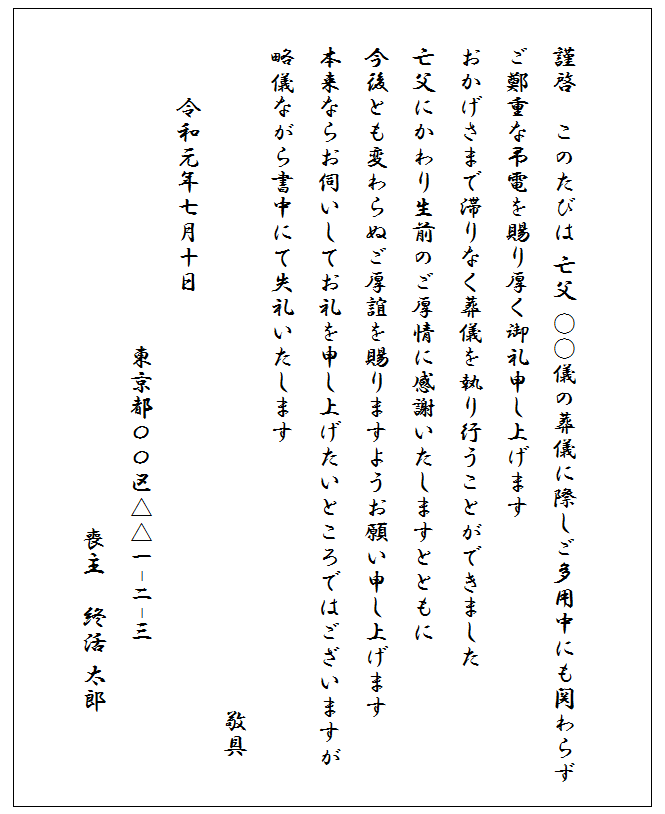 謹啓　このたびは 亡父 〇〇儀の葬儀に際しご多用中にも関わらず
ご鄭重な弔電を賜り厚く御礼申し上げます
おかげさまで滞りなく葬儀を執り行うことができました
亡父にかわり生前のご厚情に感謝いたしますとともに
今後とも変わらぬご厚誼を賜りますようお願い申し上げます
本来ならお伺いしてお礼を申し上げたいところではございますが
略儀ながら書中にて失礼いたします
敬具
令和元年七月十日
東京都〇〇区△△一－二－三
喪主　終活 太郎